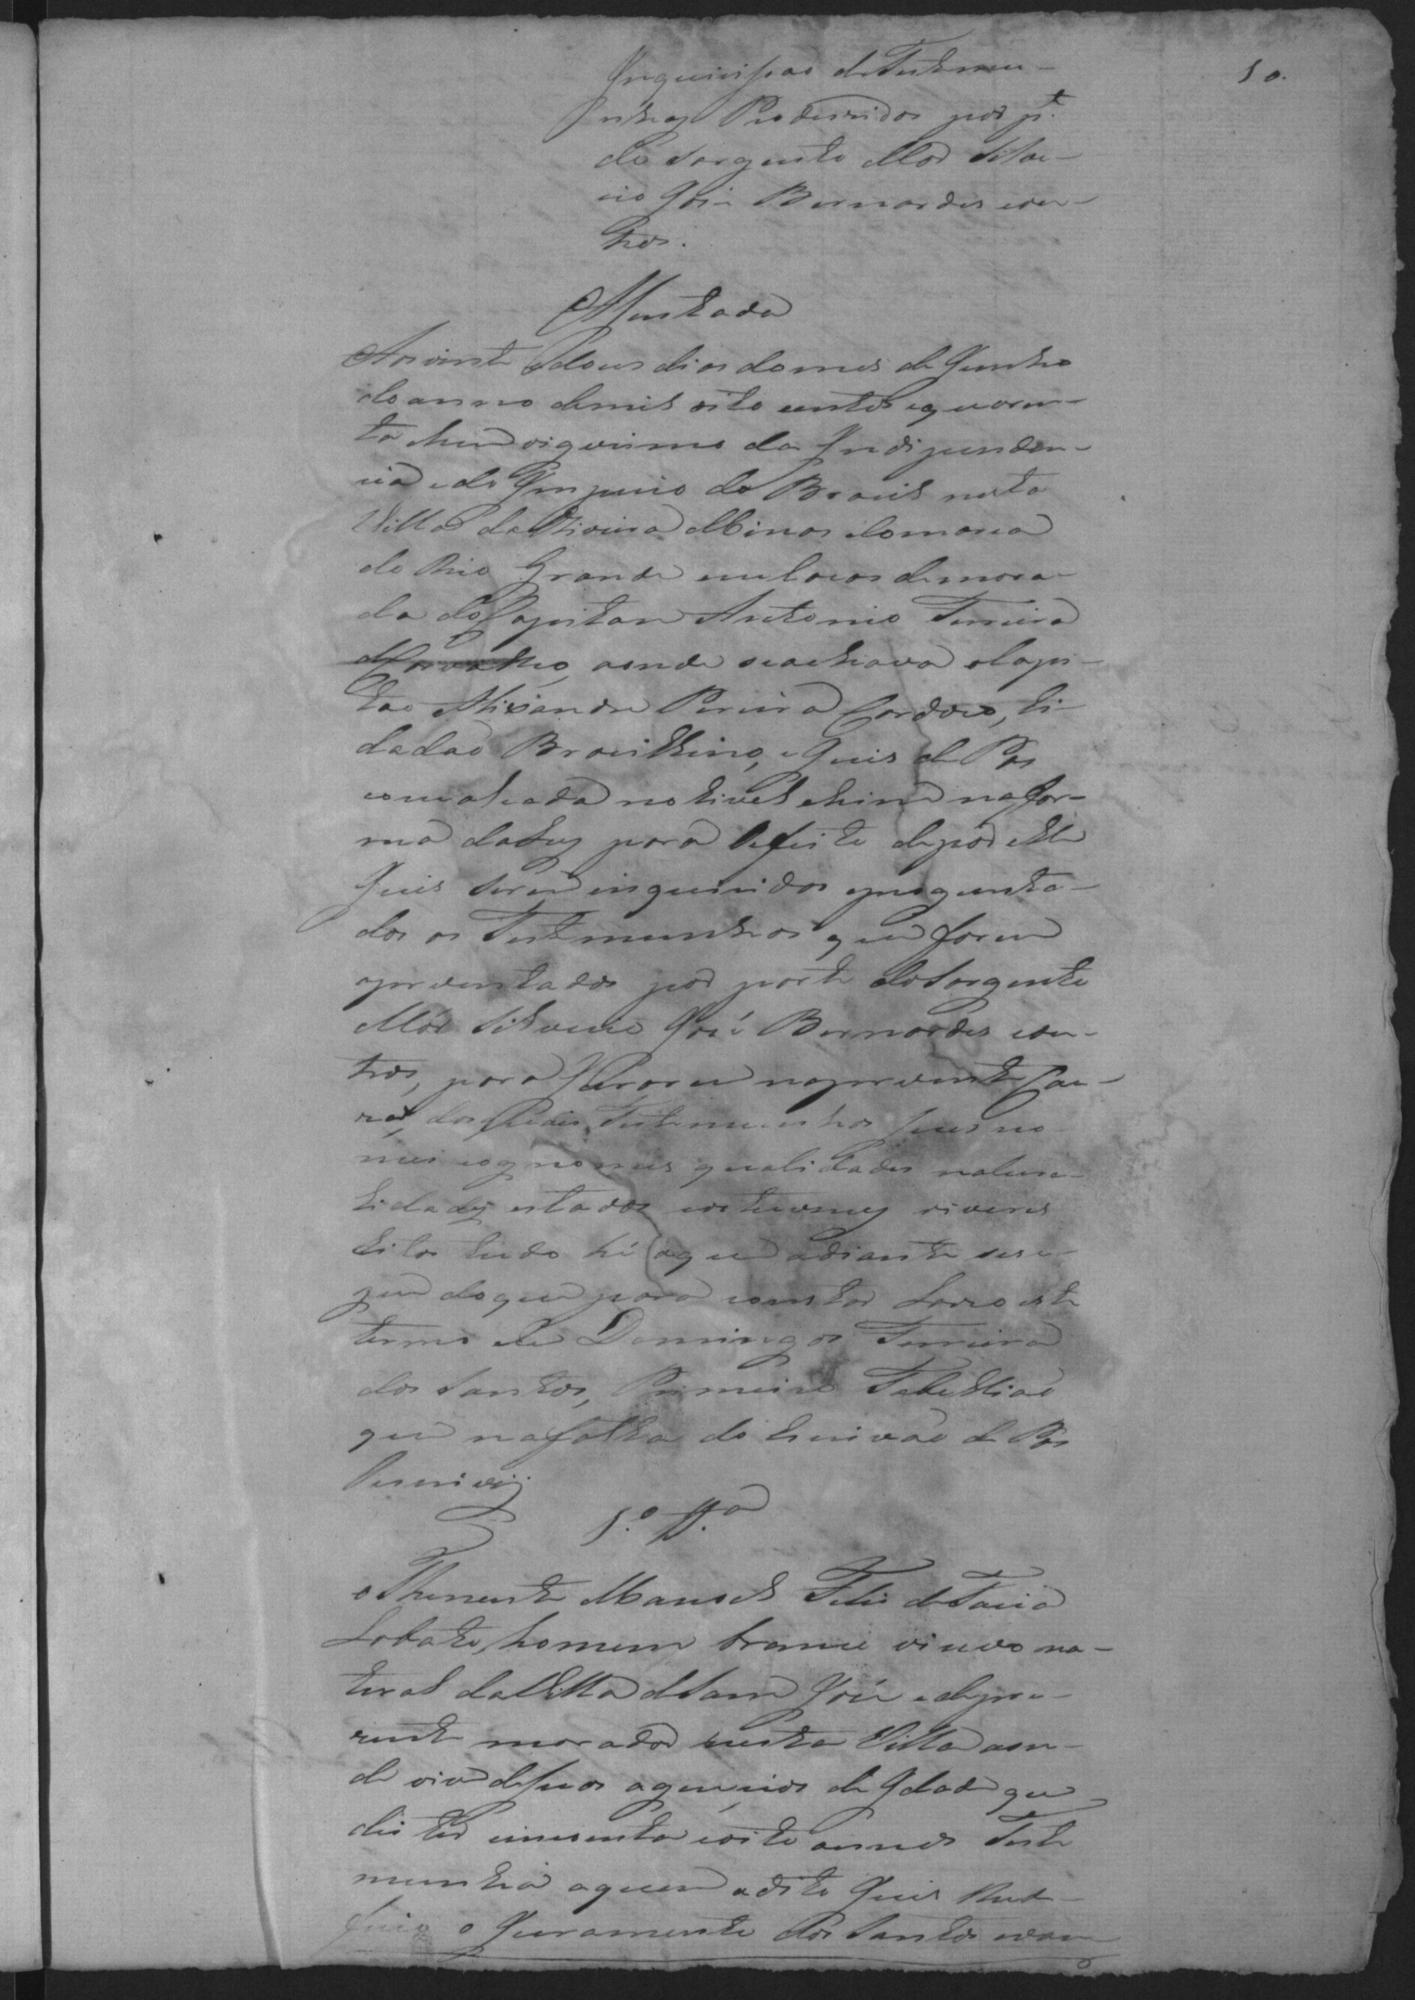 10.
Inquirisão de Testemu-
nhas Produsidas por p.te
do Sargento Mor Silve-
rio José Bernardes e ou-
tros.
Assentada
Aos vinte e dous dias do mes de Junho
do anno de mil oito centos e quaren-
ta decimo vigessimo da Independen-
cia e do Imperio do Brasil nesta
Villa da Minas e Comarca
do Rio Grande em Casas de mora-
da do Capitam Antonio Ferreira
Carvalho, aonde se achava o Capi-
tão Alixandre Pereira Cardoso, Ci-
dadão Brasilleiro, e Juis de Pás
no Civel e Crime na for-
ma da Ley para efeito de por elle
Juis serem inquiridas e pregunta-
das as Testemunhas que foram
aprezentadas por parte do Sargento
Mór Silverio José Bernardes e ou-
tros, para Jurarem na prezente Cau-
za, das quais Testemunhas seus no-
mes cognomes qualidades natura-
lidades estados costumes viveres
ditos tudo hé o que adiante se se-
gue do que para constar Lavro este
termo eu Domingos Ferreira
dos Santos, Primeiro Tabellião
que na falta do Escrivão de Pás
o escrevy
1.a T.a
o Thenente Manoel Felis de Faria
Lobato, homem branco viuvo na-
tural da Villa de Sam José e de pre-
zente morador nesta Villa aon-
de vive de suas agencias de Idade que
dis ter cincoenta e oito annos Teste
munha a quem o dito Juis
o Juramento dos Santos evan